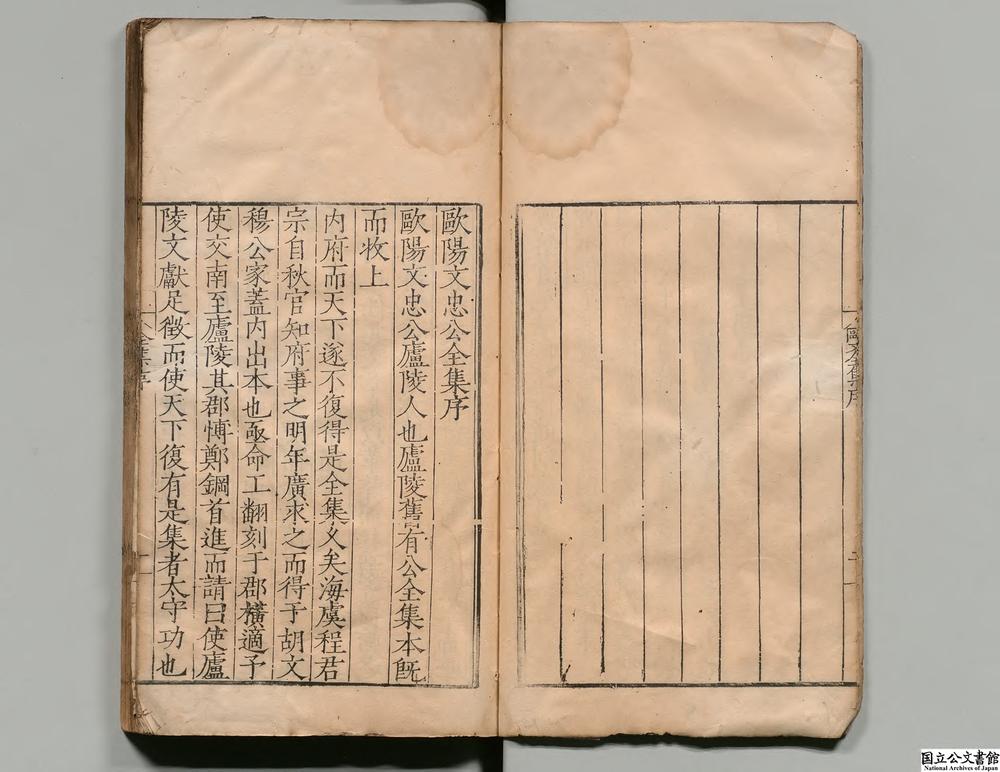 歐陽文忠公全集序
歐陽文忠公廬陵人也廬陵舊有公全集本旣
而牧上
内府而天下遂不復得是全集久矣海虞程君
宗自秋官知府事之明年廣求之而得于胡文
穆公家蓋内出本也亟命工翻刻于郡横適予
使交南至廬陵其郡愽鄭鋼首進而請曰使廬
陵文獻足徵而使天下復有是集者太守功也
国立公文書館
National Archives of Japan